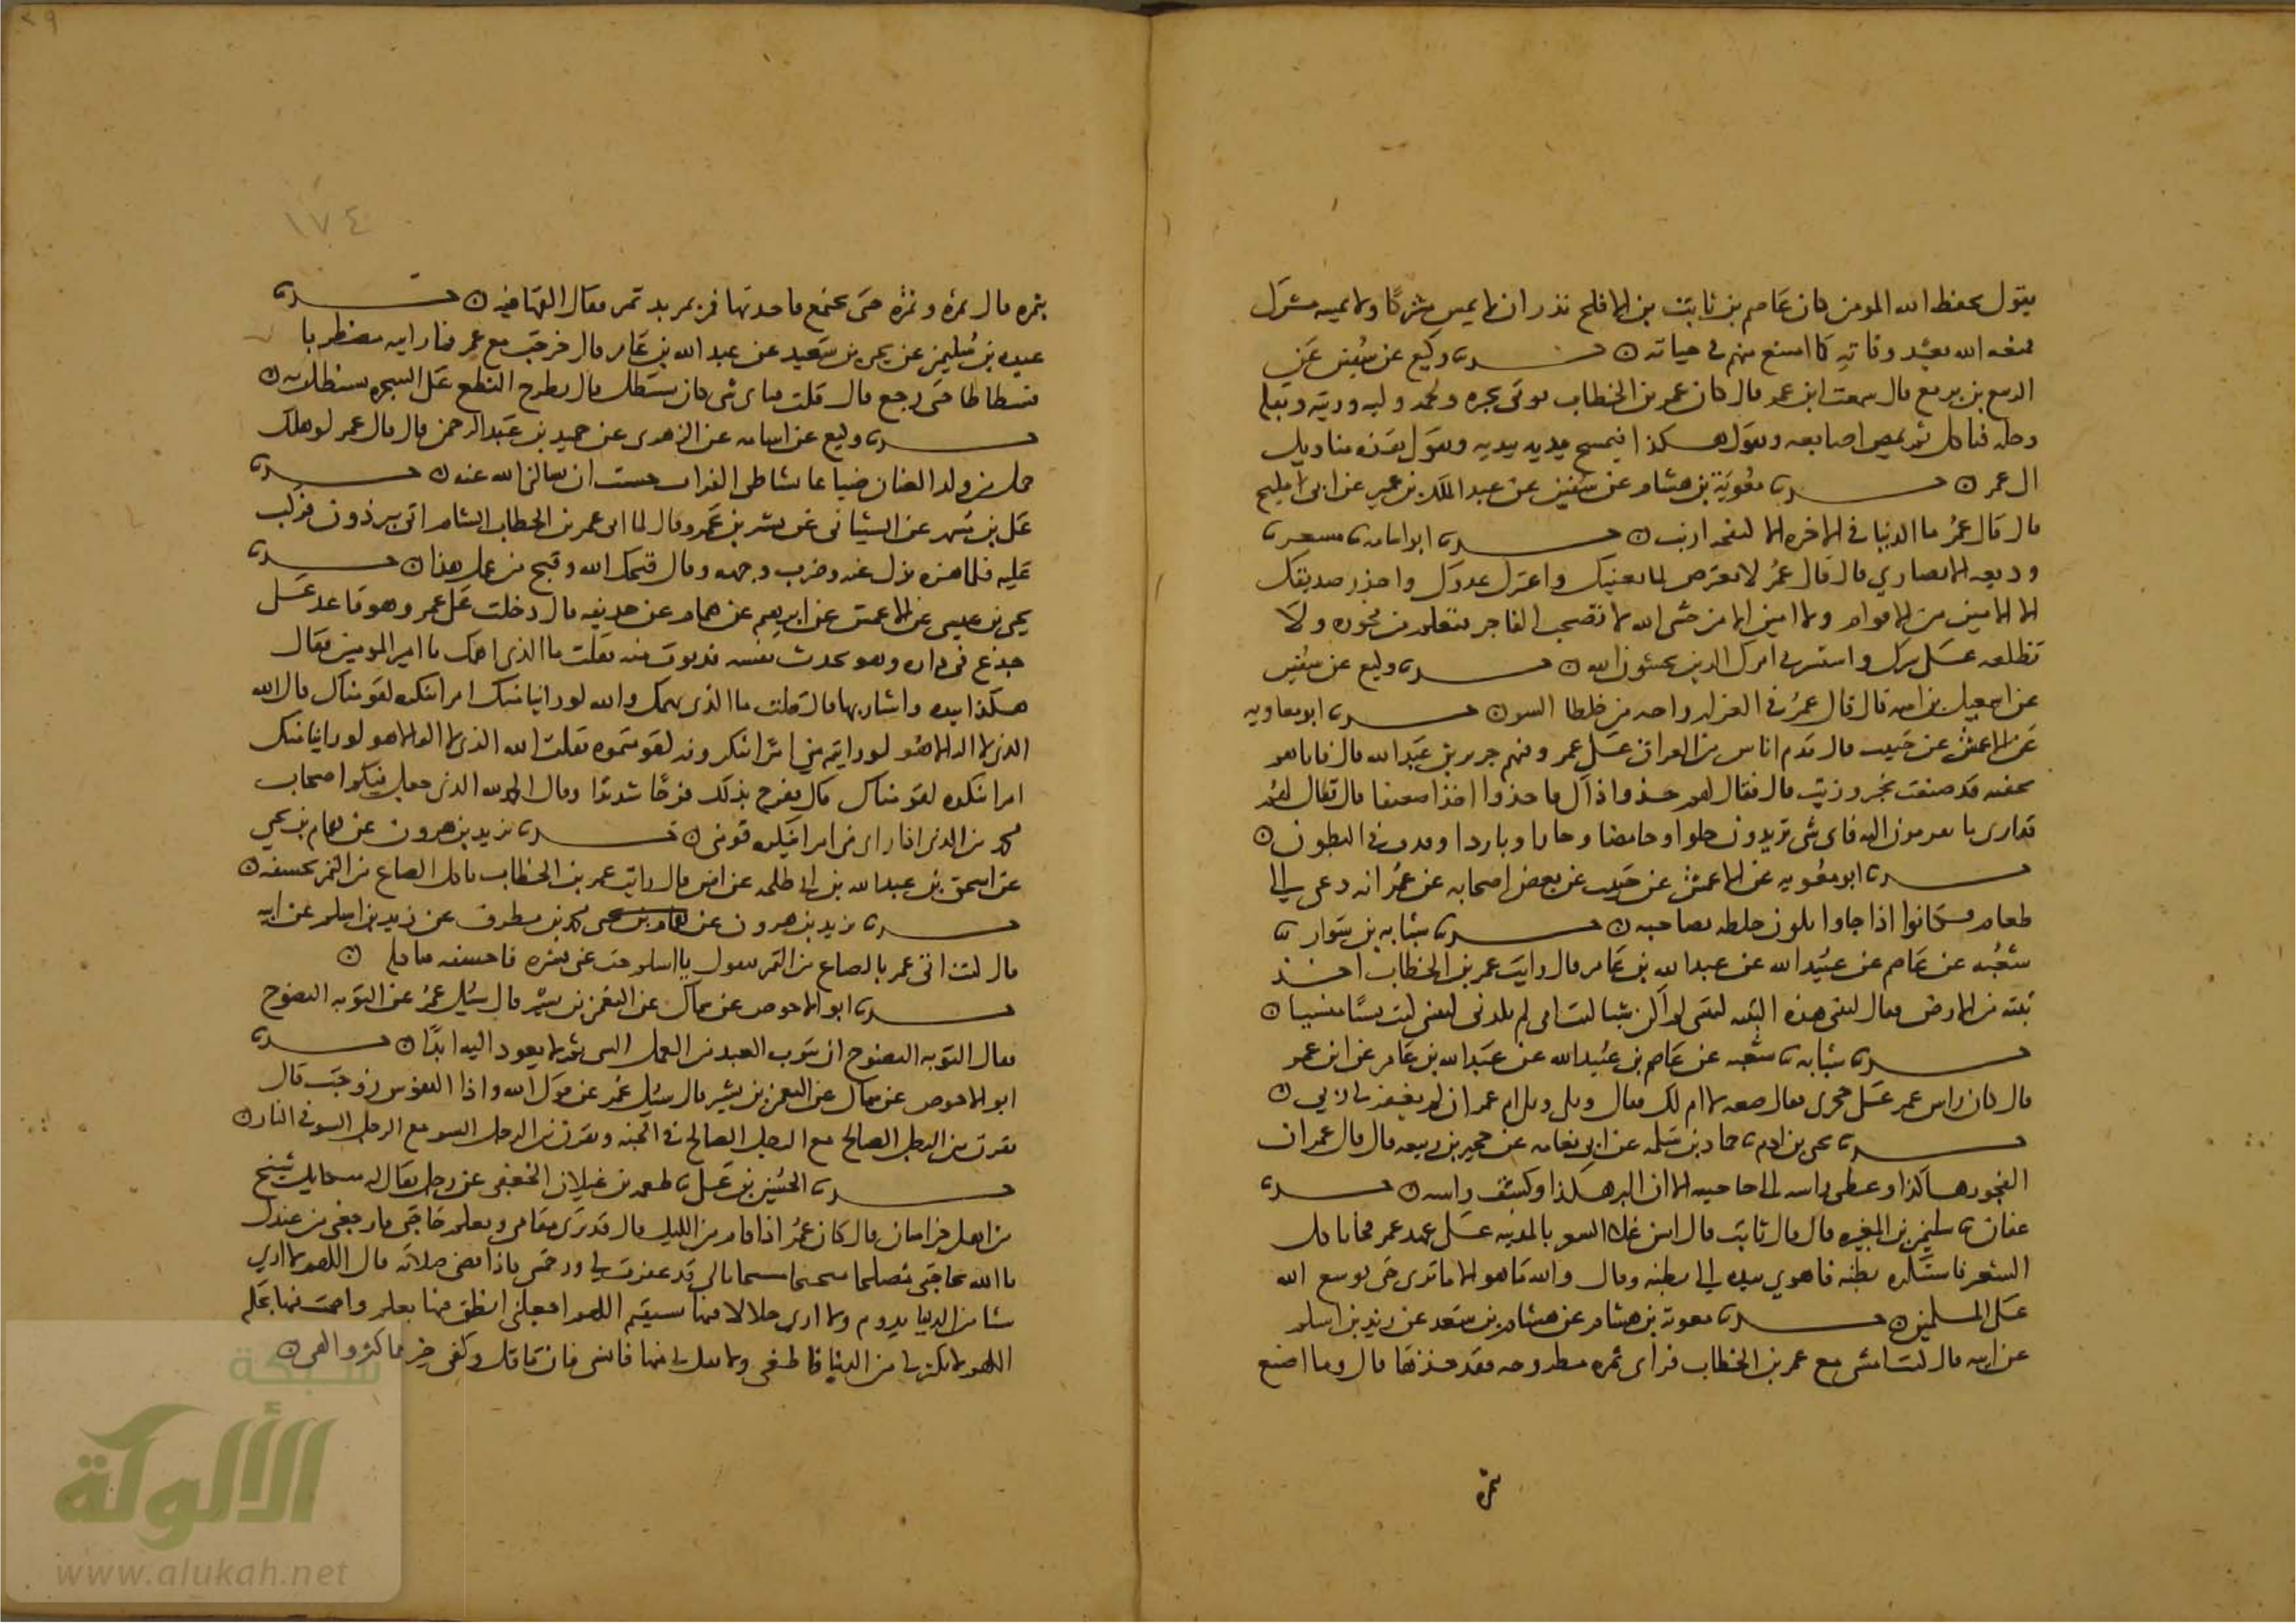 يقول يحفظ الله المومن كان عاصم بن ثابت بن الافلح نذر ان لا يمس مشركا ولا يمسه مشرك
فمنعه الله بعد وفاته كما امتنع منهم في حياته ن حدثنا وكيع عن سفين عن
الربيع بن بريع قال سمعت ابن عمر قال كان عمر بن الخطاب يوتى بخبزه ولحمه ولبنه وزيته وبقله
وخله فياكل ثم يمص اصابعه ويقول هكذا فيمسح يديه بيديه ويقول هذه مناديل
ال عمر ن حدثنا معوية بن هشام عن سفين عن عبد الملك بن عمير عن ابي مليح
قال قال عمر ما الدنيا في الاخره الا كنفجه ارنب ن حدثنا ابو اسامه نا مسعر نا
وديعه الانصاري قال قال عمر لا تعترض لما لا يعنيك واعتزل عدوك واحذر صديقك
الا الامين من الاقوام ولا امين الا من خشي الله لا تصحب الفاجر فتعلم من فجوره ولا
تطلعه على سرك واستشر في امرك الذين يخشون الله ن حدثنا وكيع عن سفين
عن اسمعيل بن اميه قال قال عمر في العزله راحه من خلطا السو ن حدثنا ابو معاويه
عن الاعمش عن حبيب قال قدم اناس من العراق على عمر وفيهم جرير بن عبد الله قال فاتاهم
بجفنه قد صنعت بخبز وزيت قال فقال لهم خذوا قال فاخذوا اخذا ضعيفا قال فقال لهم
قد ارى ما تقرمون اليه فاي شي تريدون حلوا وحامضا وحارا وباردا وقذف في البطون ن
حدثنا ابو معويه عن الاعمش عن حبيب عن بعض اصحابه عن عمر انه دعي الى
طعام فكانوا اذا جاوا بلون خلطه بصاحبه ن حدثنا شبابه بن سوار نا
شعبه عن عاصم عن عبيد الله عن عبد الله بن عامر قال رايت عمر بن الخطاب اخذ
تبنه من الارض فقال ليتني هذه التبنه ليتني لم اكن شيا ليت امي لم تلدني ليتني كنت نسيا منسيا ن
حدثنا شبابه نا شعبه عن عاصم بن عبيد الله عن عبد الله بن عامر عن ابن عمر
قال كان راس عمر على حجري فقال ضعه لا ام لك فقال ويلي ويل ام عمر ان لم يغفر لي ربي ن
حدثنا يحيى بن ادم نا حماد بن سلمه عن ابي نعامه عن حجير بن ربيعه قال قال عمر ان
الفجور هكذا وغطى راسه الى حاجبيه الا ان البر هكذا وكشف راسه ن حدثنا
عفان نا سليمن بن المغيره قال قال ثابت قال انس غلا السعر بالمدينه على عهد عمر فجعل ياكل
الشعير فاستنكره بطنه فاهوى بيده الى بطنه وقال والله ما هو الا ما ترى حتى يوسع الله
على المسلمين ن حدثنا معوية بن هشام عن هشام بن سعد عن زيد بن اسلم
عن ابيه قال كنت امشي مع عمر بن الخطاب فراى تمره مطروحه فقال خذها قال وما اصنع
تمره
١٧٤
بتمره قال تمره وتمره حتى يجتمع فاخذتها فمر بمربد تمر فقال القها فيه ن حدثنا
عبده بن سليمن عن يحيى بن سعيد عن عبد الله بن عامر قال خرجت مع عمر فما رايته مضطربا
فسطاطا حتى رجع قال قلت باي شي كان يستظل قال يطرح النطع على الشجره يستظل به ن
حدثنا وكيع عن اسامه عن الزهري عن حميد بن عبد الرحمن قال قال عمر لو هلك
حمل من ولد الضان ضياعا بشاطي الفرات خشيت ان يسالني الله عنه ن حدثنا
علي بن مسهر عن الشيباني عن بشر بن عمرو قال لما اتى عمر بن الخطاب الشام اتي ببرذون فركب
عليه فلما هزه نزل عنه وضرب وجهه وقال قبحك الله وقبح من علمك هذا ن حدثنا
يحيى بن عيسى عن الاعمش عن ابرهيم عن همام عن حذيفه قال دخلت على عمر وهو قاعد على
جذع في داره وهو يحدث نفسه فدنوت منه فقلت ما الذي اهمك يا امير المومنين فقال
هكذا بيده واشار بها قال قلت ما الذي يهمك والله لو راينا منك امرا ننكره لقومناك قال الله
الذي لا اله الا هو لو رايتم مني امرا تنكرونه لقومتموه فقلت الله الذي لا اله الا هو لو راينا منك
امرا ننكره لقومناك قال ففرح بذلك فرحا شديدا وقال الحمد لله الذي جعل فيكم اصحاب
محمد من الذي اذا راى مني امرا ينكره قومني ن حدثنا يزيد بن هرون عن همام بن يحيى
عن اسحق بن عبد الله بن ابي طلحه عن انس قال رايت عمر بن الخطاب ياكل الصاع من التمر بحشفه ن
حدثنا يزيد بن هرون عن محمد بن مطرف عن زيد بن اسلم عن ابيه
قال كنت اتي عمر بالصاع من التمر فيقول يا اسلم حت عني قشره فاحشفه فياكله ن
حدثنا ابو الاحوص عن سماك عن النعمن بن بشير قال سئل عمر عن التوبه النصوح
فقال التوبه النصوح ان يتوب العبد من العمل السي ثم لا يعود اليه ابدا ن حدثنا
ابو الاحوص عن سماك عن النعمن بن بشير قال سئل عمر عن قول الله واذا النفوس زوجت قال
يقرن بين الرجل الصالح مع الرجل الصالح في الجنه ويقرن بين الرجل السو مع الرجل السو في النار ن
حدثنا الحسين بن علي نا طعمه بن غيلان الجعفي عن رجل يقال له ميكائيل شيخ
من اهل خراسان قال كان عمر اذا قام من الليل قال قد ترى مقامي وتعلم حاجتي فارجعني من عندك
يا الله بحاجتي مفلحا منجحا مستجابا لي قد غفرت لي ورحمتني فاذا قضى صلاته قال اللهم لا ارى
شيا من الدنيا يدوم ولا ارى حالا فيها يستقيم اللهم اجعلني انطق فيها بعلم واصمت فيها بحكم
اللهم لا تكثر لي من الدنيا فاطغى ولا تقل لي منها فانسى فان ما قل وكفى خير مما كثر والهى ن
شبكة
الألوكة
www.alukah.net